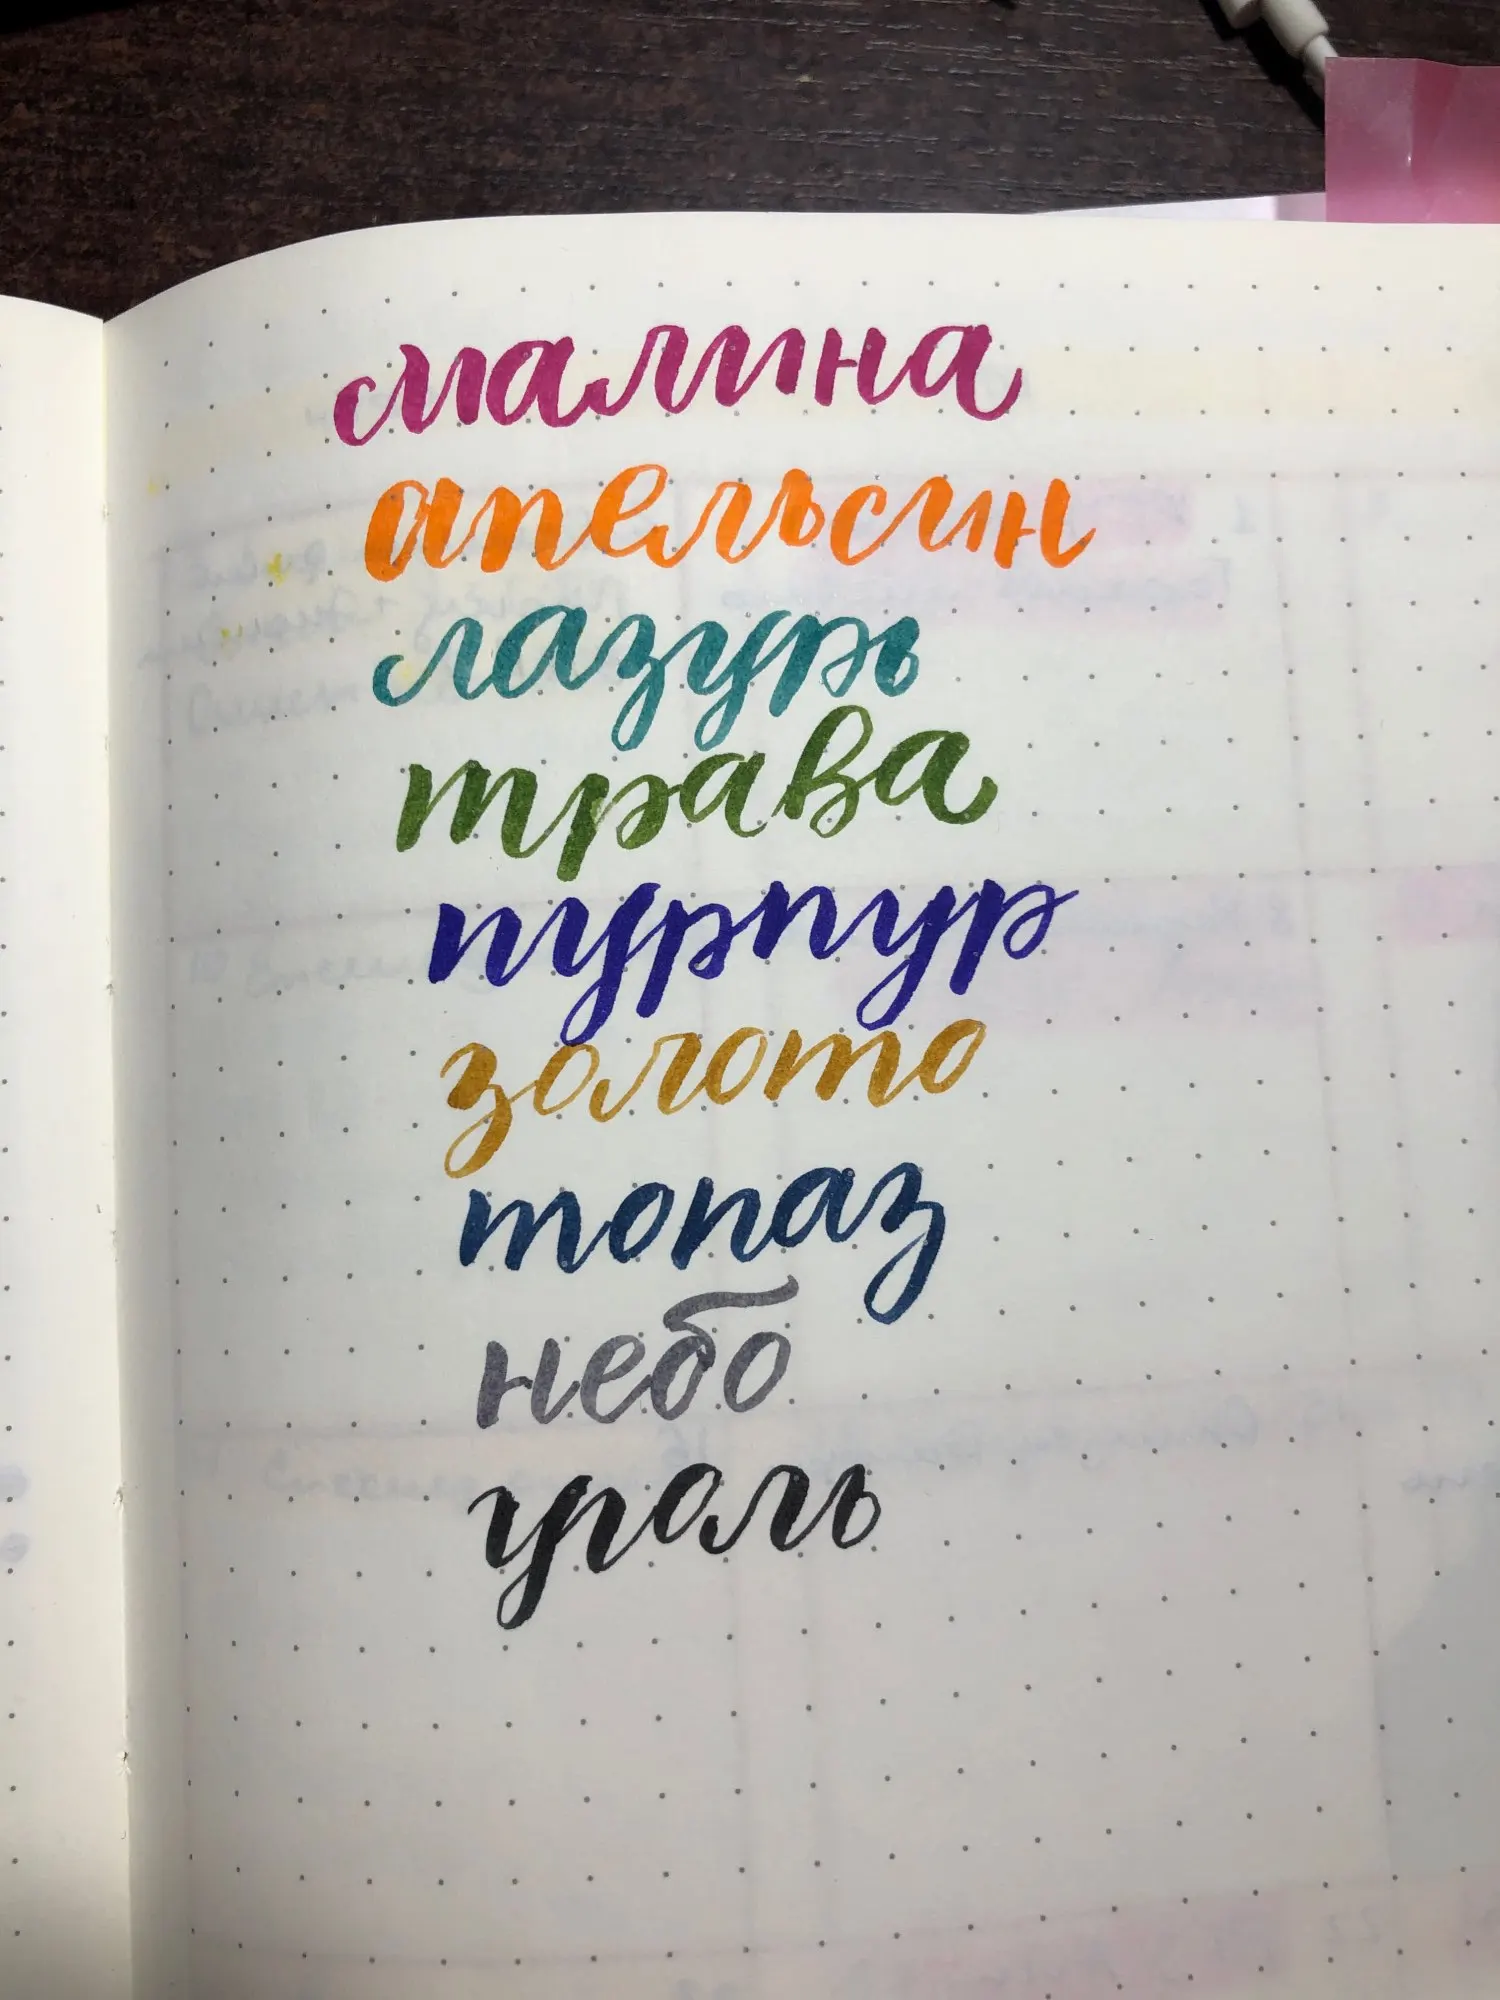 малина
апельсин
лазурь
трава
пурпур
золото
топаз
небо
уголь